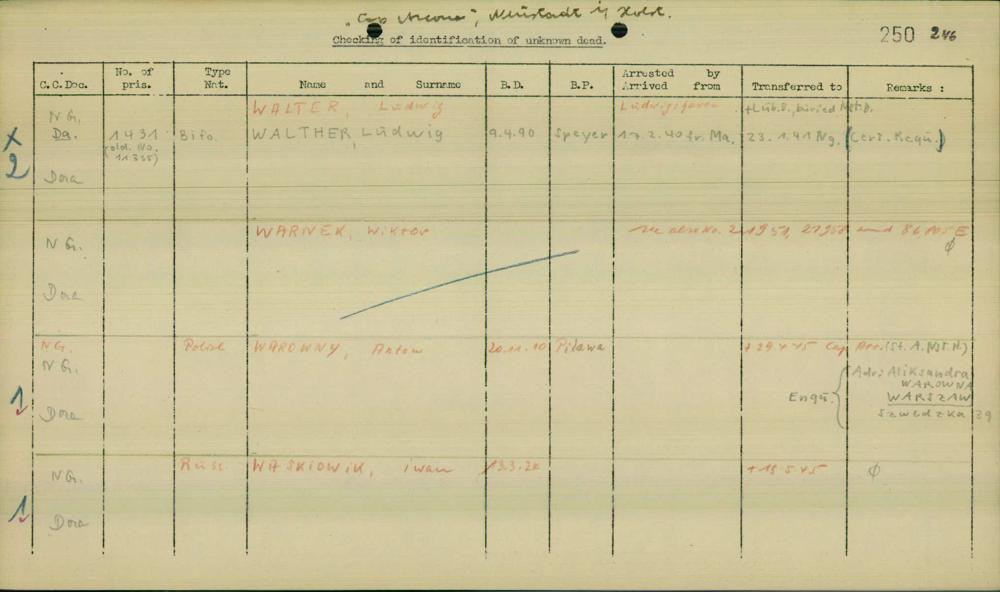 "Cap Arcona", Neustadt i/ Holst.
Checking of identification of unknown dead.
250 246
C.C.Doc. No. of pris. Type Nat. Name and Surname B.D. B.P. Arrested by Arrived from Transferred to Remarks :
NG. WALTER, Ludwig Ludwigshafen +Lüb.B., buried Nst.B.
X Da. 1431 Bifo. WALTHER, Ludwig 9.4.90 Speyer 17.2.40 fr. Ma. 23.1.41 Ng. (Cert. Requ.)
2 (old. No. 11355)
Dora
WARNEK, Wiktor see also No. 21951, 27958 and 86105 E
NG. ϕ
Dora
NG. Polish WAROWNY, Anton 20.11.10 Pilawa + 29 4 45 Cap Arc. (St. A. Nst. H.)
NG.
Enqu. { Adr: Aliksandra
WAROWNA
WARSZAW
1 Dora Szwedzka 29
NG. Russ. WASKIOWIK, iwan 13.3.24 + 15 5 45 ϕ
1 Dora